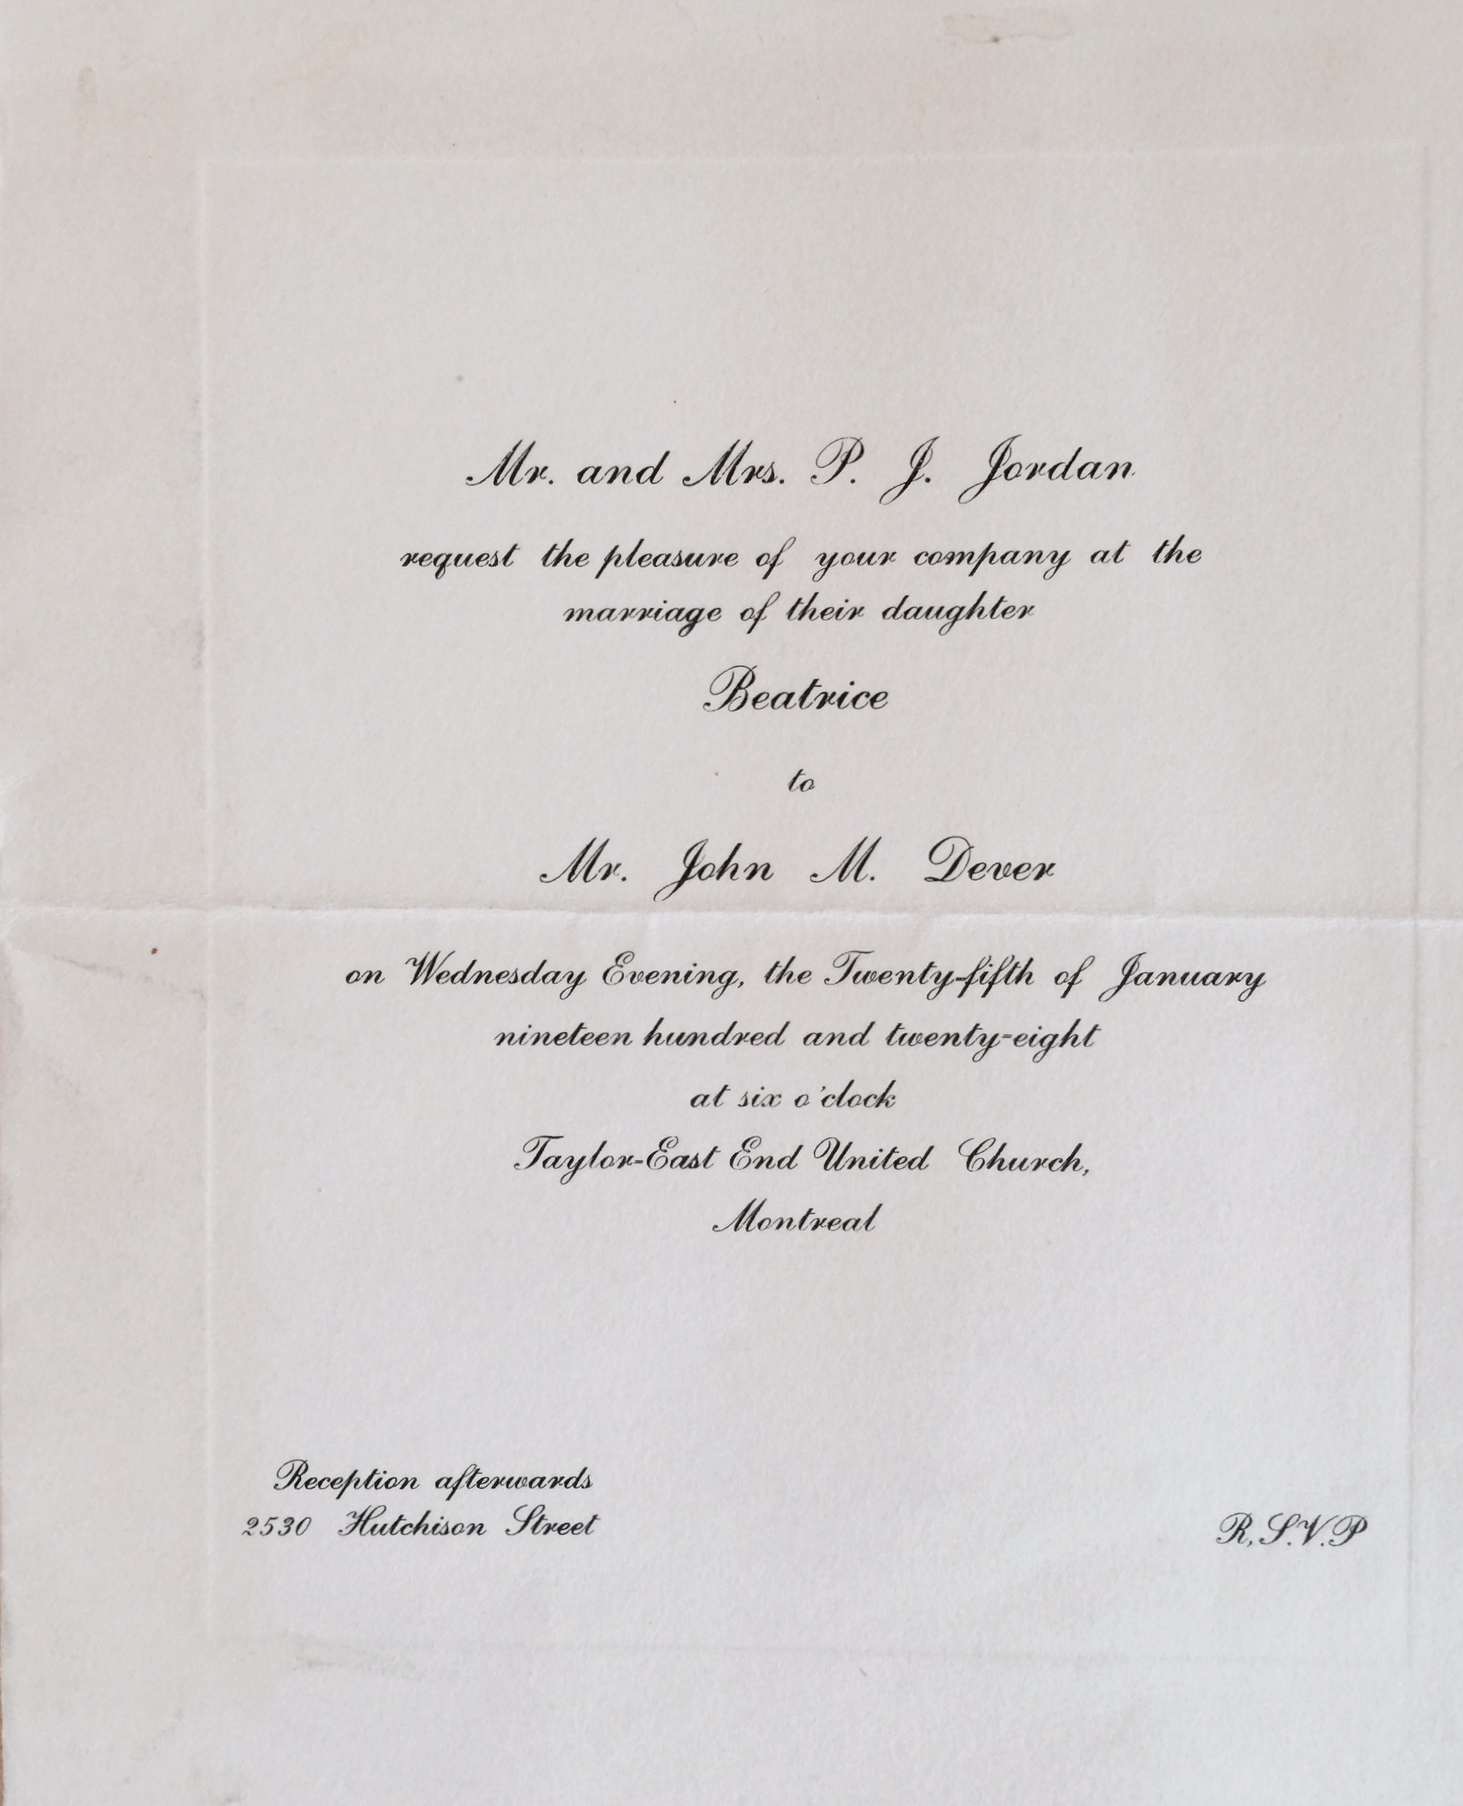 Mr. and Mrs. P. J. Jordan
request the pleasure of your company at the
marriage of their daughter
Beatrice
to
Mr. John M. Dever
on Wednesday Evening, the Twenty-fifth of January
nineteen hundred and twenty-eight
at six o'clock
Taylor-East End United Church,
Montreal
Reception afterwards
2530 Hutchison Street
R,S.V.P